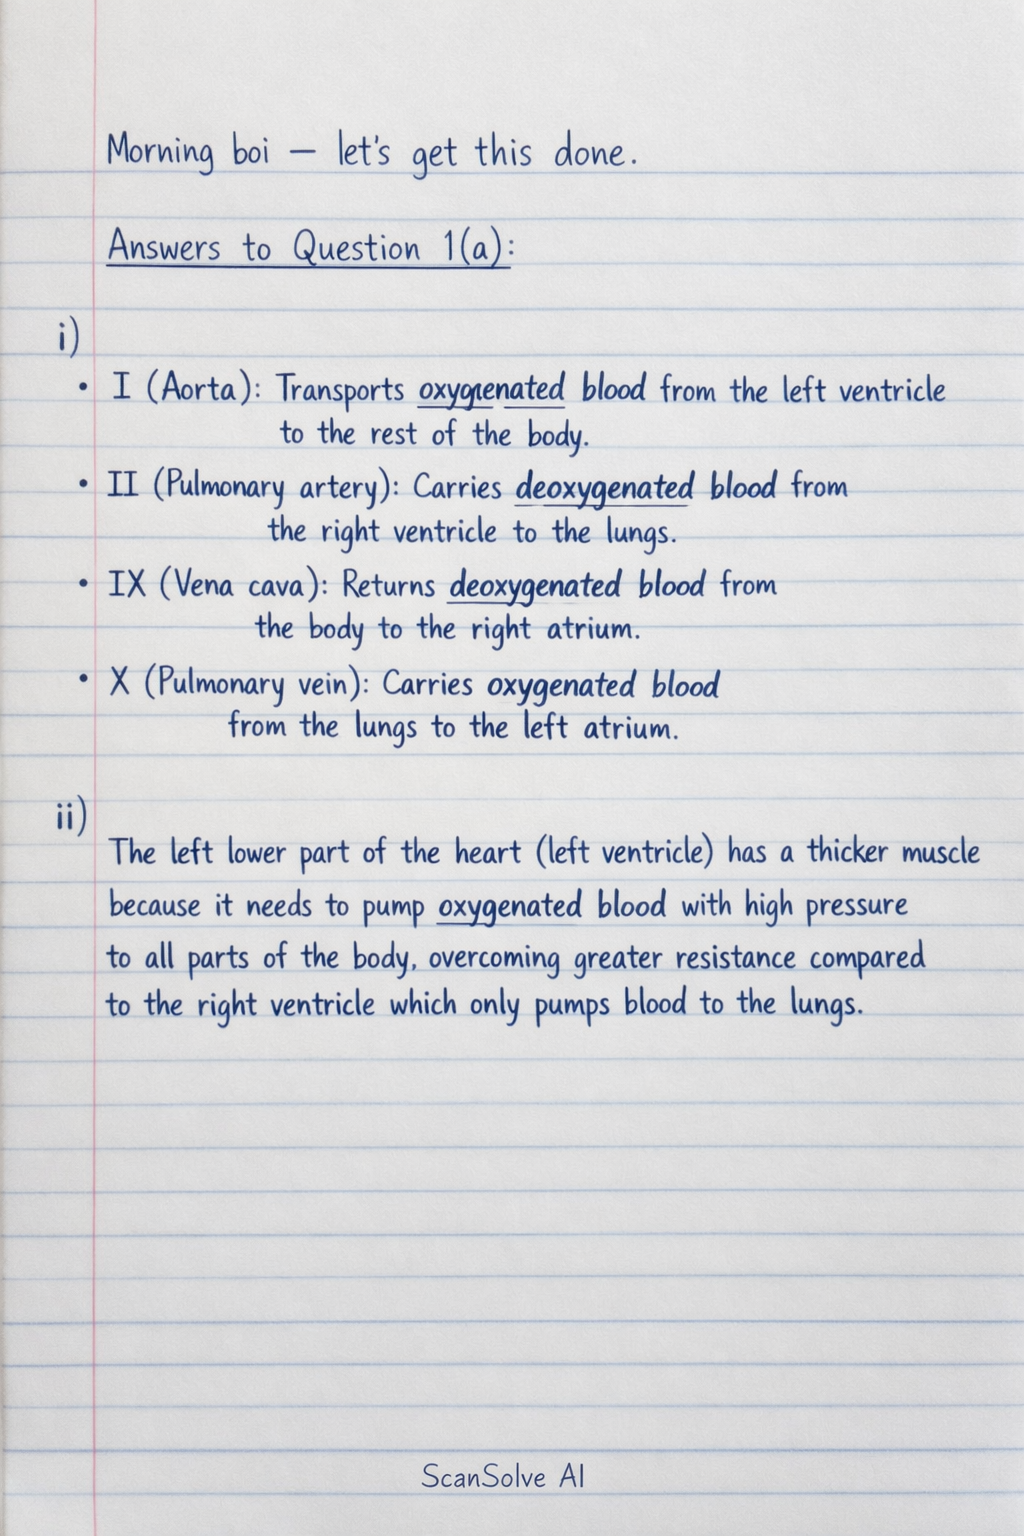 Morning boi — let's get this done.
Answers to Question 1(a):
i)
• I (Aorta): Transports oxygenated blood from the left ventricle
to the rest of the body.
• II (Pulmonary artery): Carries deoxygenated blood from
the right ventricle to the lungs.
• IX (Vena cava): Returns deoxygenated blood from
the body to the right atrium.
• X (Pulmonary vein): Carries oxygenated blood
from the lungs to the left atrium.
ii)
The left lower part of the heart (left ventricle) has a thicker muscle
because it needs to pump oxygenated blood with high pressure
to all parts of the body, overcoming greater resistance compared
to the right ventricle which only pumps blood to the lungs.
ScanSolve AI